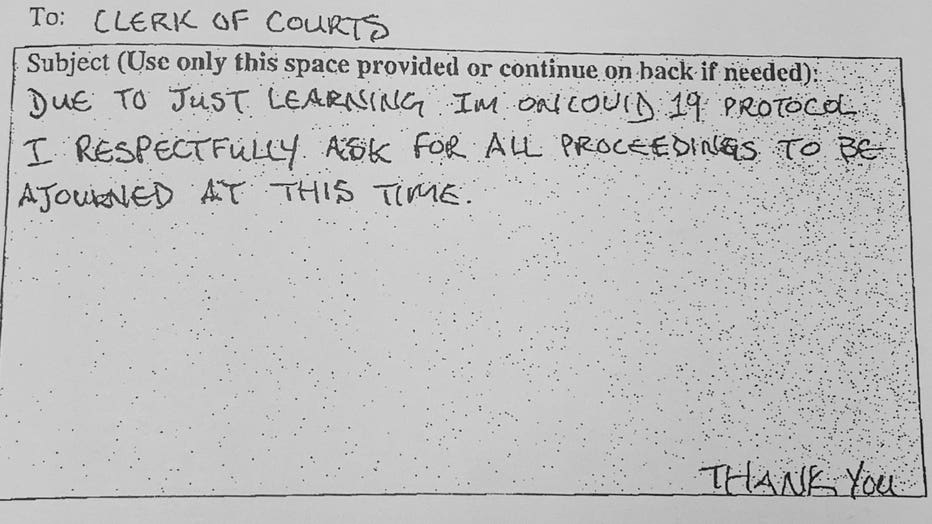 To: CLERK OF COURTS
Subject (Use only this space provided or continue on back if needed):
DUE TO JUST LEARNING IM ON COVID 19 PROTOCOL
I RESPECTFULLY ASK FOR ALL PROCEEDINGS TO BE
AJOURNED AT THIS TIME.
THANK YOU